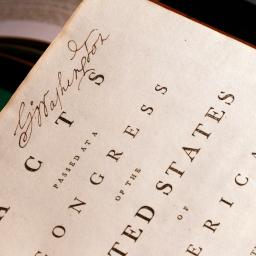 G:Washington
A C T S
PASSED AT A
CONGRESS
OF THE
TED STATES
OF
ERICA